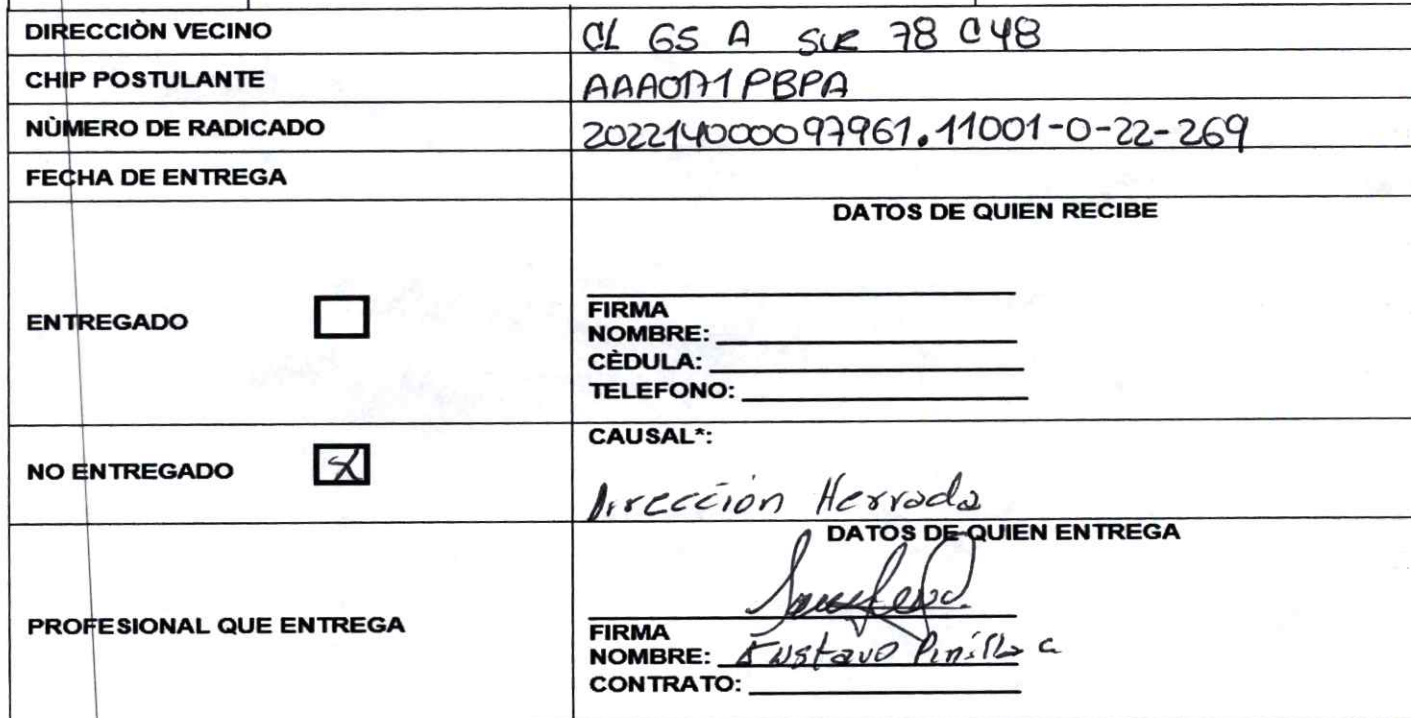 DIRECCIÒN VECINO CL 65 A SUR 78 C 48
CHIP POSTULANTE AAA0171PBPA
NÙMERO DE RADICADO 202214000097961.11001-0-22-269
FECHA DE ENTREGA
DATOS DE QUIEN RECIBE
ENTREGADO
FIRMA
NOMBRE:
CÈDULA:
TELEFONO:
NO ENTREGADO X
CAUSAL*:
Dirección Herrada
DATOS DE QUIEN ENTREGA
PROFESIONAL QUE ENTREGA
FIRMA
NOMBRE: Gustavo Pinilla C
CONTRATO: